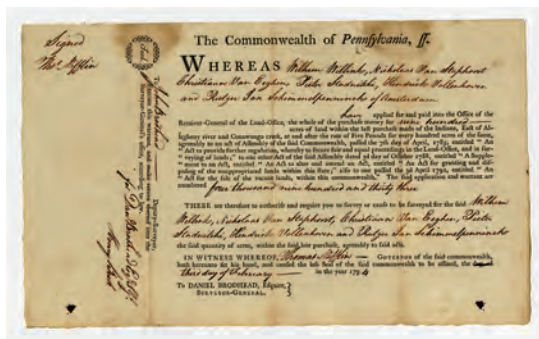 Signed
Tho.s Mifflin
The Commonwealth of Pennsylvania, ss.
WHEREAS Wilhem Willink, Nicholas Van Staphorst
Christiaan Van Eeghen, Pieter Stadnitski, Hendrick Vollenhoven
and Rutger Jan Schimmelpenninck of Amsterdam
have applied for and paid into the Office of the
Receiver-General of the Land-Office, the whole of the purchase money for nine hundred
acres of land within the last purchase made of the Indians, East of Al-
legheny river and Conawango creek, at and after the rate of Five Pounds for every hundred acres of the same,
agreeably to an act of Assembly of the said Commonwealth, passed the day of April, 1785, entitled "An
Act to provide further regulations, whereby to secure fair and equal proceedings in the Land-Office, and in sur-
veying of lands;" to one other Act of the said Assembly dated 3d day of October 1788, entitled "A Supple-
ment to an Act, entitled "An Act to alter and amend an Act, entitled "An Act for granting and dis-
posing of the unappropriated lands within this state;" also to one passed the 3d April 1792, entitled "An
Act for the sale of the vacant lands, within this commonwealth." The said application and warrant are
numbered four thousand nine hundred and thirty three
THESE are therefore to authorise and require you to survey or cause to be surveyed for the said Wilhem
Willink, Nicholas Van Staphorst, Christiaan Van Eeghen, Pieter
Stadnitski, Hendrick Vollenhoven and Rutger Jan Schimmelpenninck
the said quantity of acres, within the said late purchase, agreeably to said acts.
IN WITNESS WHEREOF, Thomas Mifflin Governor of the said commonwealth,
hath hereunto set his hand, and caused the less Seal of the said commonwealth to be affixed, the
third day of February in the year 1794
To DANIEL BRODHEAD, Esquire,
Surveyor-General.
Seal
To John Brodhead Deputy-Surveyor.
Execute this warrant, and make return thereof into the
Surveyor-General's office, according to law.
for Dan Brodhead S G